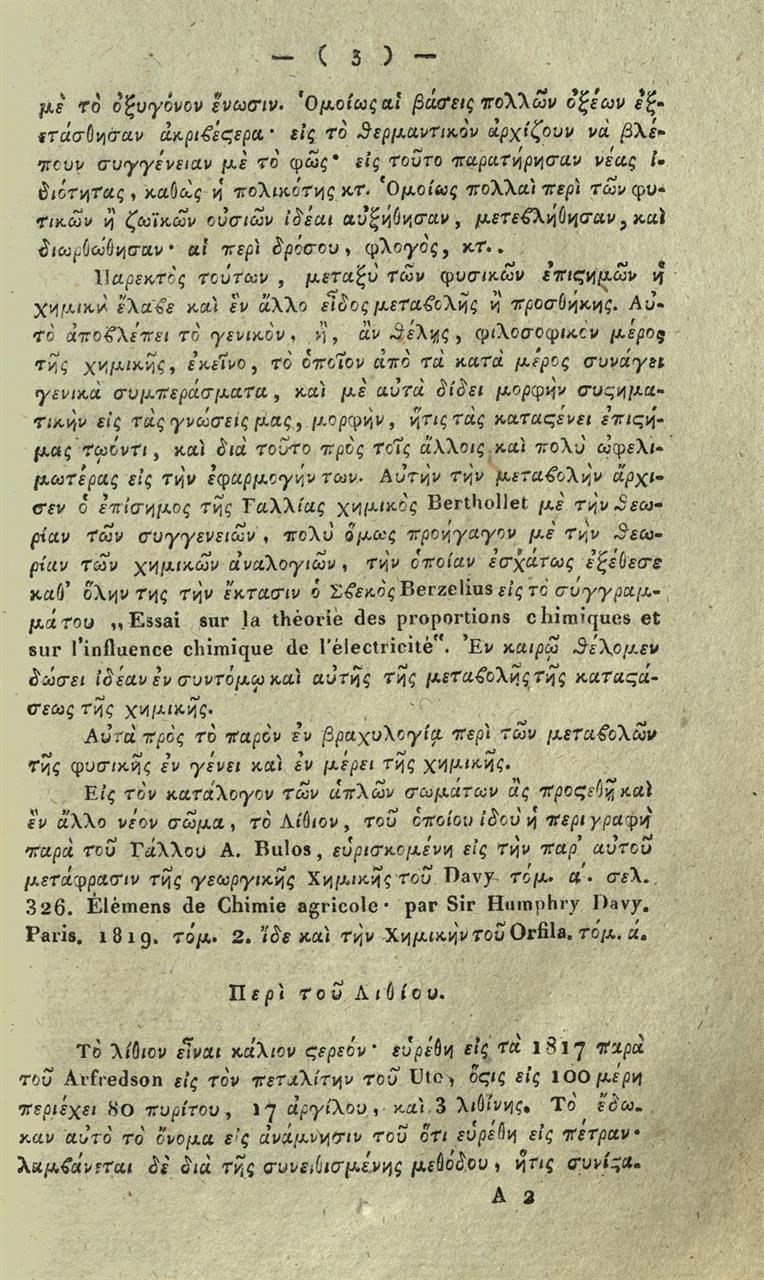 — ( 3 ) —
μὲ τὸ ὀξυγόνον ἕνωσιν. Ὁμοίως αἱ βάσεις πολλῶν ὀξέων ἐξ-
ετάσθησαν ἀκριβέςερα· εἰς τὸ θερμαντικὸν ἀρχίζουν νὰ βλέ-
πουν συγγένειαν μὲ τὸ φῶς· εἰς τοῦτο παρατήρησαν νέας ἰ-
διότητας, καθὼς ἡ πολικότης κτ. Ὁμοίως πολλαὶ περὶ τῶν φυ-
τικῶν ἢ ζωϊκῶν οὐσιῶν ἰδέαι αὐξήθησαν, μετεβλήθησαν, καὶ
διωρθώθησαν· αἱ περὶ δρόσου, φλογὸς, κτ..
Παρεκτὸς τούτων, μεταξὺ τῶν φυσικῶν ἐπιςημῶν ἡ
χημικὴ ἔλαβε καὶ ἓν ἄλλο εἶδος μεταβολῆς ἢ προσθήκης. Αὐ-
τὸ ἀποβλέπει τὸ γενικὸν, ἢ, ἂν θέλῃς, φιλοσοφικὸν μέρος
τῆς χημικῆς, ἐκεῖνο, τὸ ὁποῖον ἀπὸ τὰ κατὰ μέρος συνάγει
γενικὰ συμπεράσματα, καὶ μὲ αὐτὰ δίδει μορφὴν συςημα-
τικὴν εἰς τὰς γνώσεις μας, μορφὴν, ἥτις τὰς καταςένει ἐπιςή-
μας τῳόντι, καὶ διὰ τοῦτο πρὸς τοῖς ἄλλοις καὶ πολὺ ὠφελι-
μωτέρας εἰς τὴν ἐφαρμογήν των. Αὐτὴν τὴν μεταβολὴν ἄρχι-
σεν ὁ ἐπίσημος τῆς Γαλλίας χημικὸς Berthollet μὲ τὴν θεω-
ρίαν τῶν συγγενειῶν, πολὺ ὅμως προήγαγον μὲ τὴν θεω-
ρίαν τῶν χημικῶν ἀναλογιῶν, τὴν ὁποίαν ἐσχάτως ἐξέθεσε
καθ' ὅλην της τὴν ἔκτασιν ὁ Σβεκὸς Berzelius εἰς τὸ σύγγραμ-
μά του „Essai sur la théorie des proportions chimiques et
sur l'influence chimique de l'électricité“. Ἐν καιρῷ θέλομεν
δώσει ἰδέαν ἐν συντόμῳ καὶ αὐτῆς τῆς μεταβολῆς τῆς καταςά-
σεως τῆς χημικῆς.
Αὐτὰ πρὸς τὸ παρὸν ἐν βραχυλογίᾳ περὶ τῶν μεταβολῶν
τῆς φυσικῆς ἐν γένει καὶ ἐν μέρει τῆς χημικῆς.
Εἰς τὸν κατάλογον τῶν ἁπλῶν σωμάτων ἂς προςεθῇ καὶ
ἓν ἄλλο νέον σῶμα, τὸ Λίθιον, τοῦ ὁποίου ἰδοὺ ἡ περιγραφὴ
παρὰ τοῦ Γάλλου A. Bulos, εὑρισκομένη εἰς τὴν παρ' αὐτοῦ
μετάφρασιν τῆς γεωργικῆς Χημικῆς τοῦ Davy. τόμ. α΄. σελ.
326. Élémens de Chimie agricole· par Sir Humphry Davy.
Paris. 1819. τόμ. 2. ἴδε καὶ τὴν Χημικὴν τοῦ Orfila. τόμ. ά.
Περὶ τοῦ Λιθίου.
Τὸ λίθιον εἶναι κάλιον ςερεόν· εὑρέθη εἰς τὰ 1817 παρὰ
τοῦ Arfredson εἰς τὸν πεταλίτην τοῦ Uto, ὅςις εἰς 100 μέρη
περιέχει 80 πυρίτου, 17 ἀργίλου, καὶ 3 λιθίνης. Τὸ ἔδω-
καν αὐτὸ τὸ ὄνομα εἰς ἀνάμνησιν τοῦ ὅτι εὑρέθη εἰς πέτραν·
λαμβάνεται δὲ διὰ τῆς συνειθισμένης μεθόδου, ἥτις συνίςα-
A 2